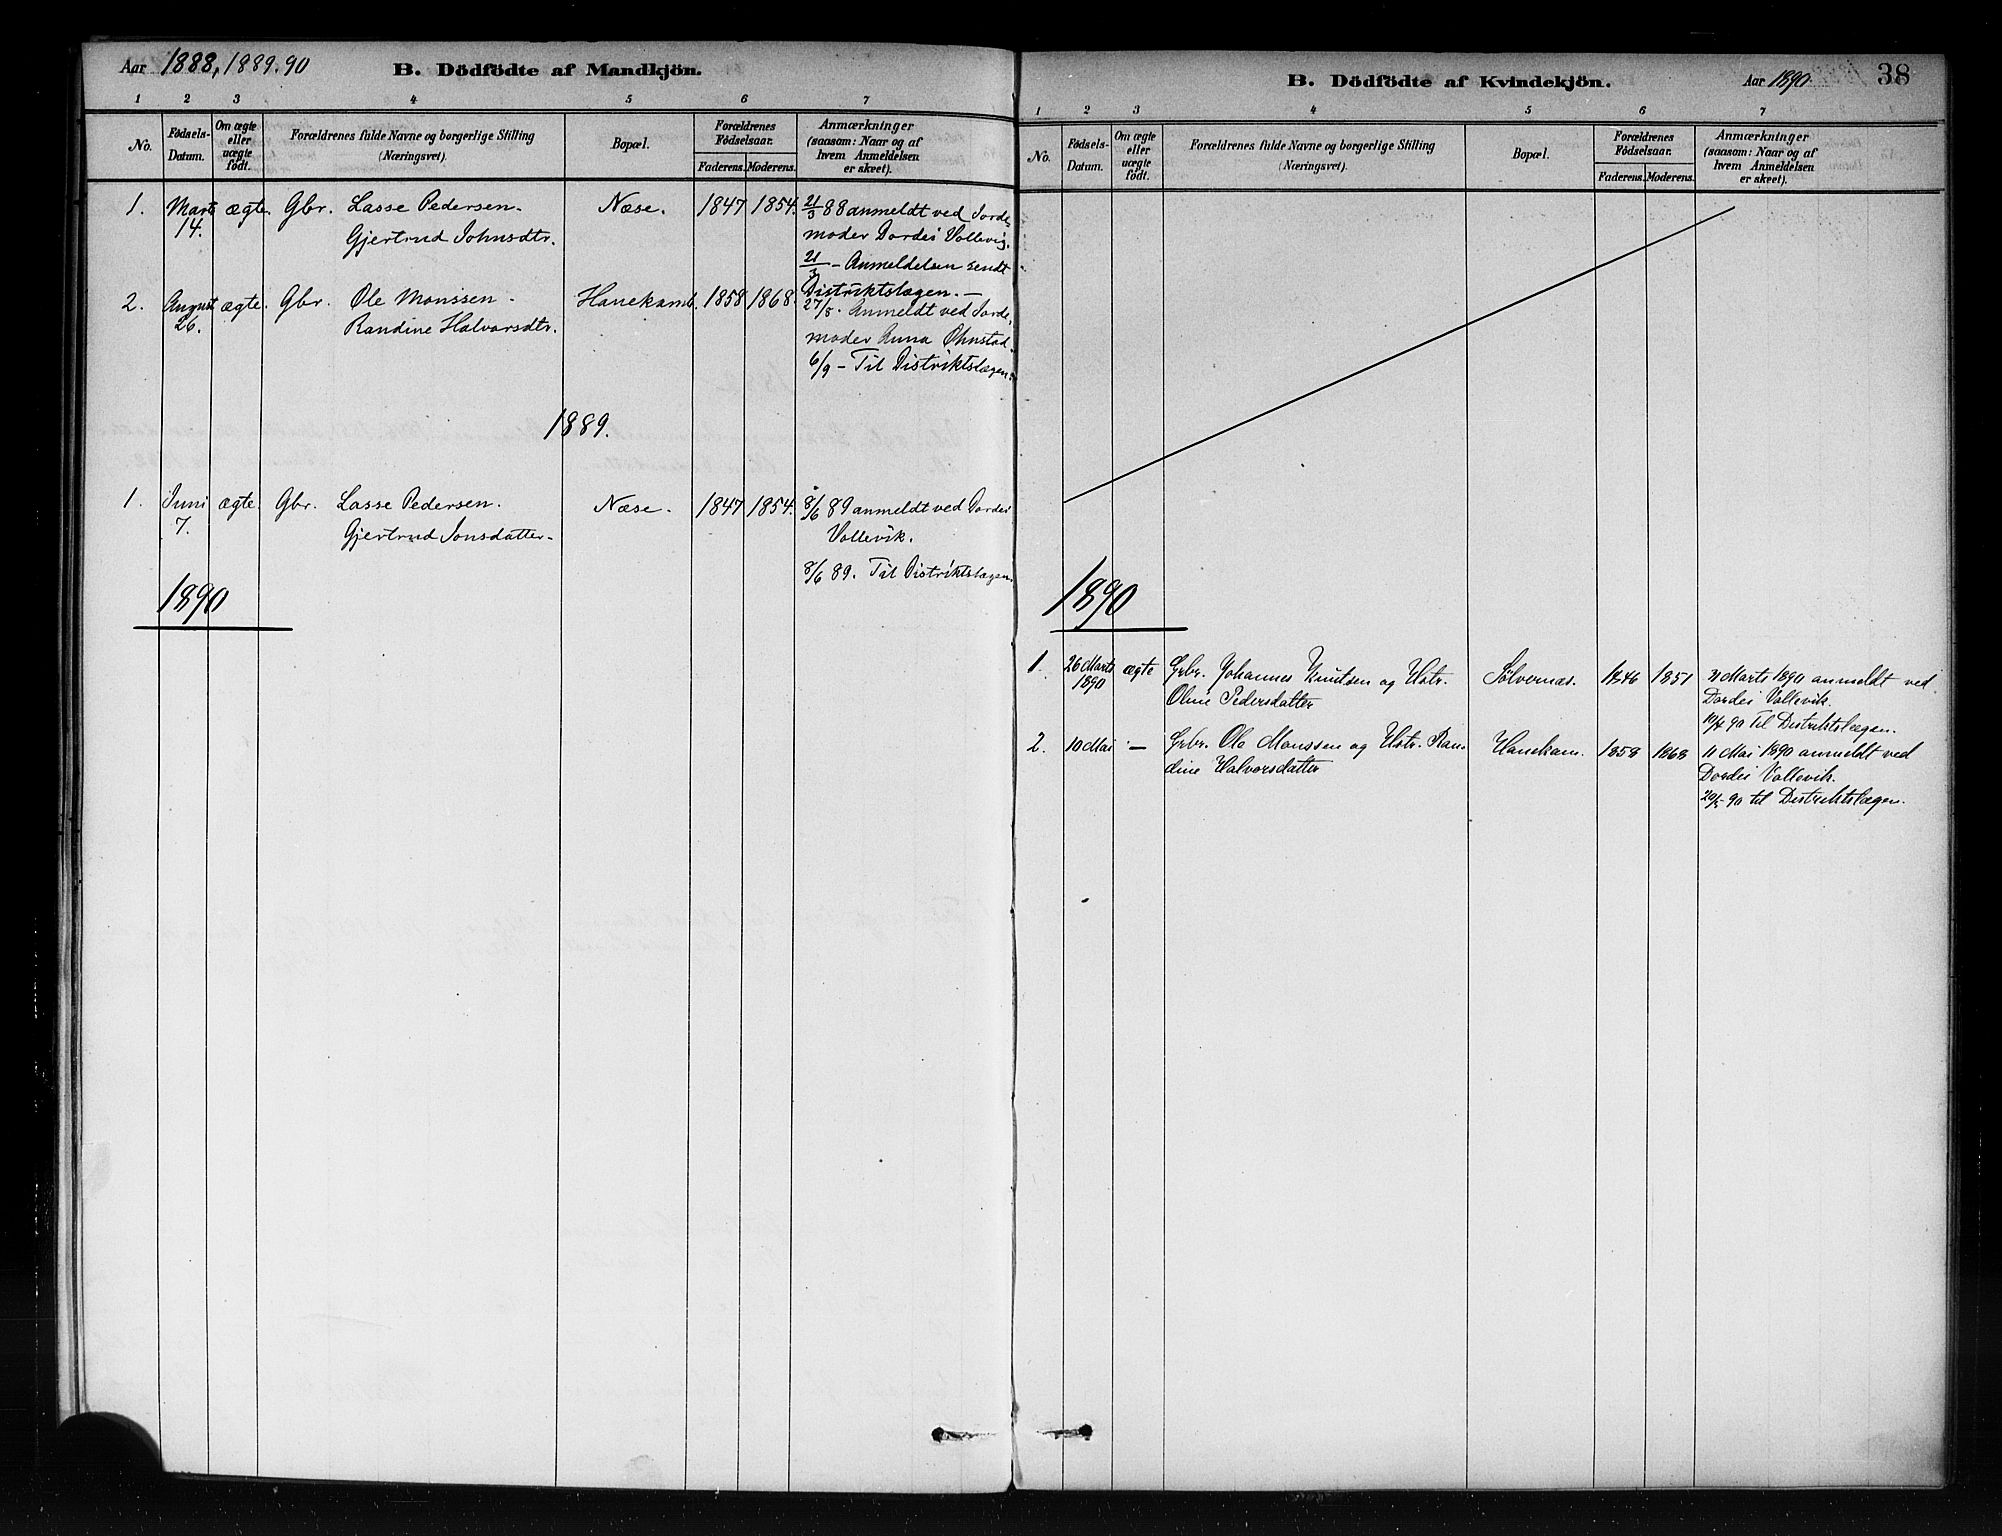 Aar 1888, 1889. 90
B. Dödfödte af Mandkjön.
1 2 3 4 5 6 7
No.
Fødsels-
Datum.
Om ægte
eller
uægte
født.
Forældrenes fulde Navne og borgerlige Stilling
(Næringsvei).
Bopæl.
Forældrenes
Fødselsaar.
Faderens. Moderens.
Anmærkninger
(saasom: Naar og af
hvem Anmeldelsen
er skeet).
1. Marts ægte. Gbr. Lasse Pedersen. Næse. 1847 1854. 21/3 88 anmeldt ved Jorde-
14. Gjertrud Johnsdtr. moder Dordei Vollevig.
21/3 - Anmeldelsen sendt
Distriktslægen. -
2. August ægte. Gbr. Ole Monssen. Hanekamb. 1858 1868. 27/8. Anmeldt ved Jorde-
26. Randine Halvorsdtr. moder Anna Ohnstad.
6/9 - Til Distriktslægen.
1889.
1. Juni ægte. Gbr. Lasse Pedersen. Næse. 1847 1854. 8/6 89 anmeldt ved Dordei
7. Gjertrud Jonsdatter. Vollevik.
8/6 89. Til Distriktslægen.
1890
B. Dödfödte af Kvindekjön.
Aar 1890 38
1 2 3 4 5 6 7
No.
Fødsels-
Datum.
Om ægte
eller
uægte
født.
Forældrenes fulde Navne og borgerlige Stilling
(Næringsvei).
Bopæl.
Forældrenes
Fødselsaar.
Faderens. Moderens.
Anmærkninger
(saasom: Naar og af
hvem Anmeldelsen
er skeet).
1890
1. 26 Marts ægte Grbr. Johannes Knutsen og Hstr. Sølvernæs. 1846 1851 Marts 1890 anmeldt ved
1890 Oline Pedersdatter Dordei Vollevik.
90 Til Distriktslægen.
2. 10 Mai - Grbr. Ole Monssen og Hstr. Ran- Hanekam. 1858 1868 11 Mai 1890 anmeldt ved
dine Halvorsdatter Dordei Vollevik.
20/5 90 til Distriktslægen.